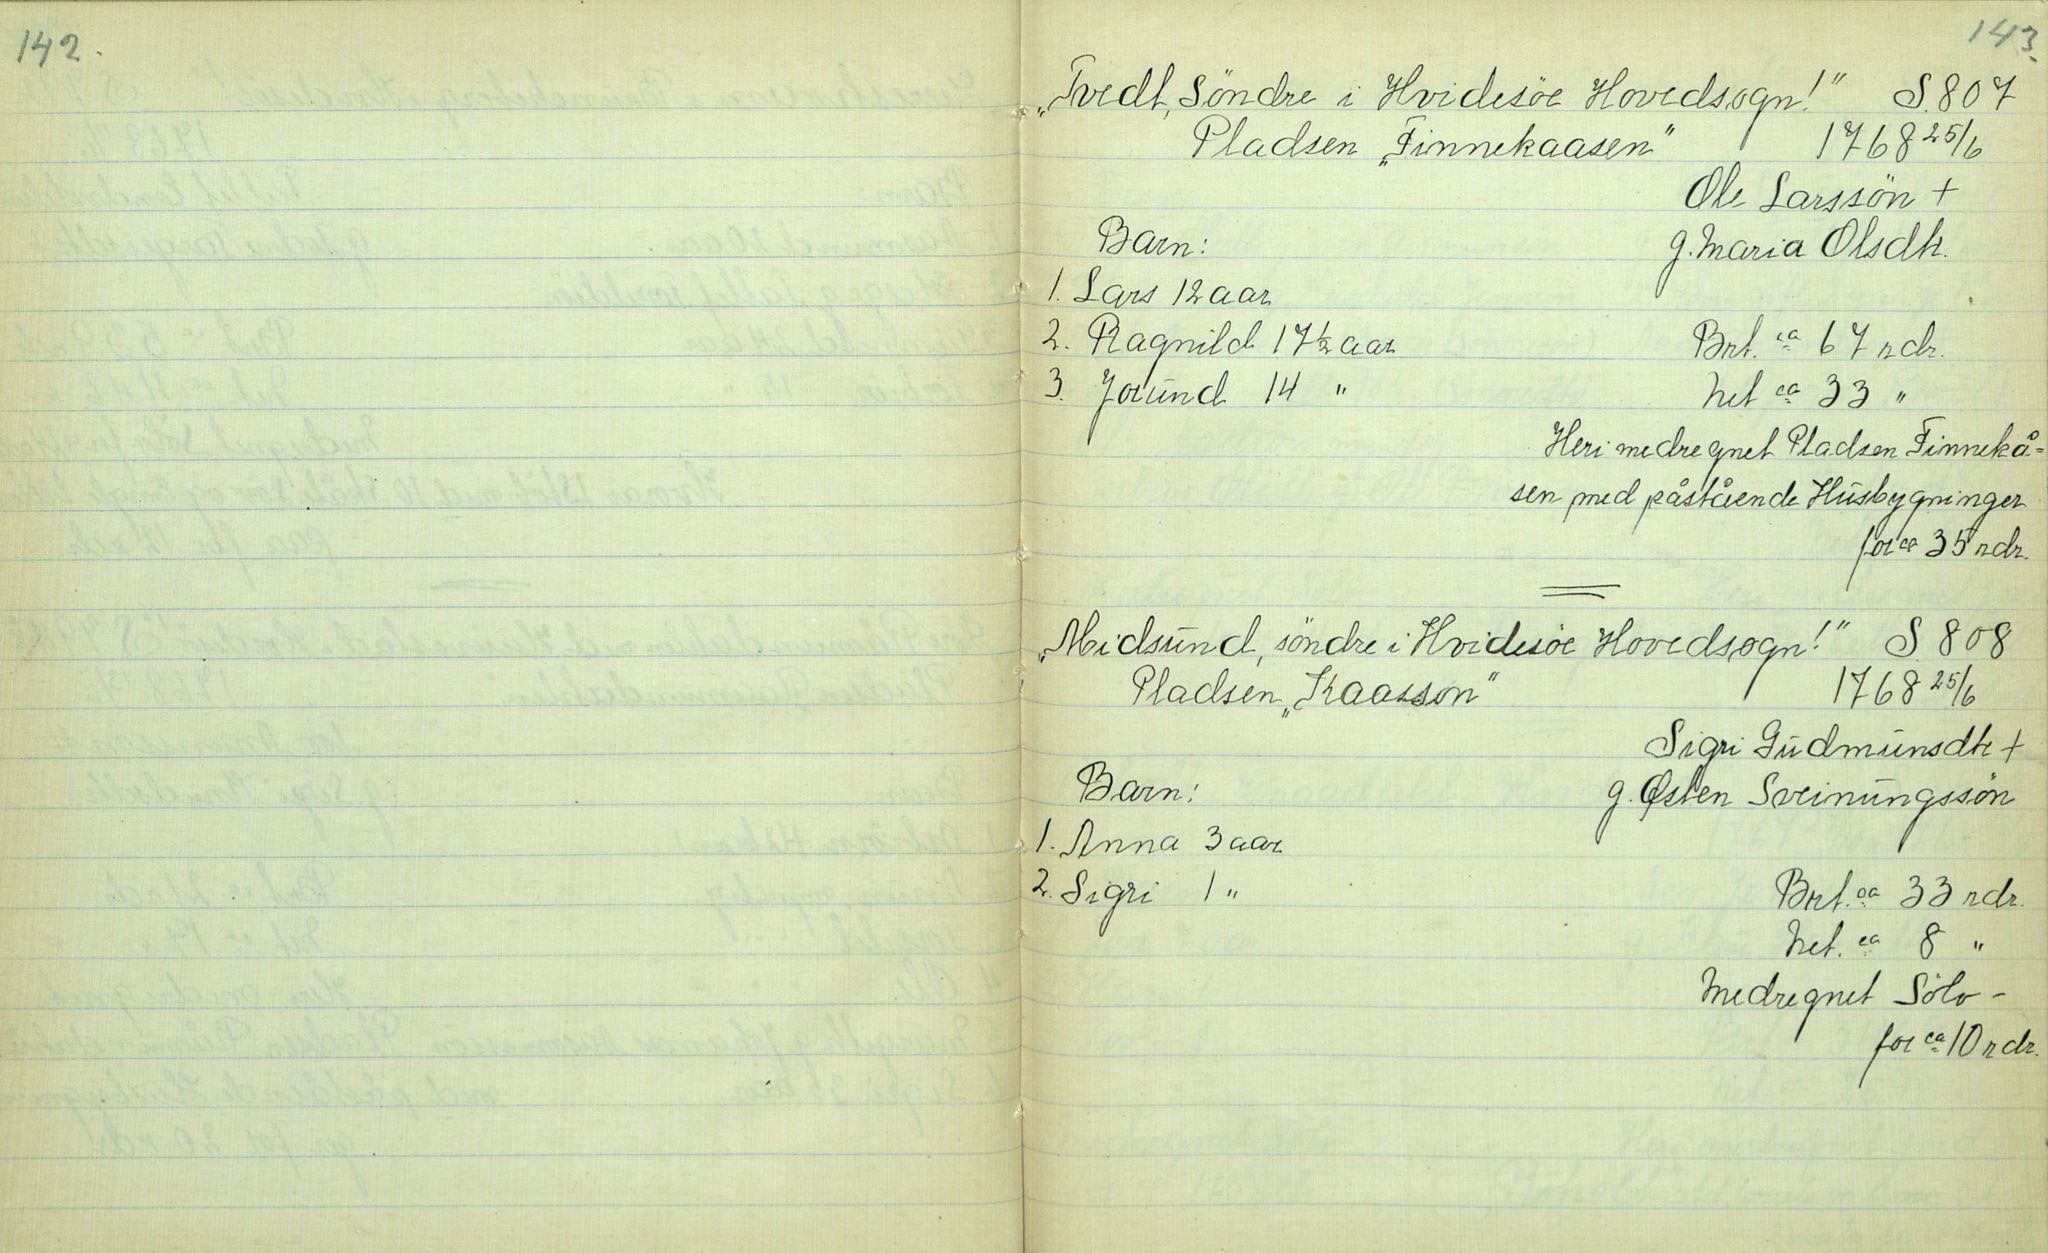 142.
143.
„Tvedt, Söndre i Hvidesöe Hovedsogn!" S. 807
Pladsen „Finnekaasen" 1768 25/6
Ole Larssön +
Barn: g. Maria Olsdtr.
1. Lars 12 aar
2. Ragnild 17½ aar Brt. ca 67 rdr.
3. Jorund 14 " Net ca 33 "
Heri medregnet Pladsen Finnekå-
sen med påstående Husbygninger
for ca 35 rdr.
„Midsund, söndre i Hvidesöe Hovedsogn!" S 808
Pladsen „Kaasson" 1768 25/6
Sigri Gudmunsdtr +
Barn: g. Østen Sveinungssön
1. Anna 3 aar
2. Sigri 1 " Brt. ca 33 rdr.
Net. ca 8 "
Medregnet Sölv-
for ca 10 rdr.